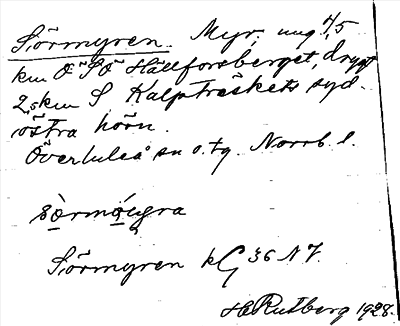 Sörmyren. Myr, ung 4,5
km ÖSÖ Hällforsberget, drygt
2,5 km S Kalpträskets syd-
östra hörn.
Överluleå sn o. tg. Norrb. l.
Sörmyren kG 36 N 7.
H Rutberg 1928.